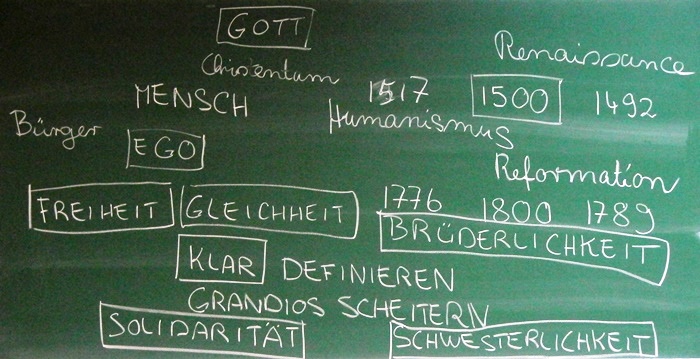 GOTT
Renaissance
Chrisentum
MENSCH 1517 1500 1492
Bürger Humanismus
EGO
Reformation
FREIHEIT GLEICHHEIT 1776 1800 1789
BRÜDERLICHKEIT
KLAR DEFINIEREN
GRANDIOS SCHEITERN
SOLIDARITÄT SCHWESTERLICHKEIT